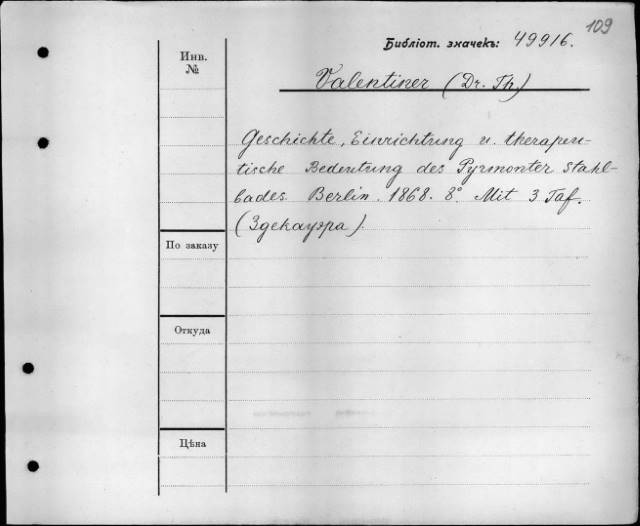 109
Библіот. значекъ: 49916.
Инв.
№
Valentiner (Dr. Th.)
Geschichte, Einrichtung u. therapeu-
tische Bedeutung des Pyrmonter Stahl-
bades. Berlin. 1868. 8° Mit 3 Taf.
(Здекауэра).
По заказу
Откуда
Цѣна